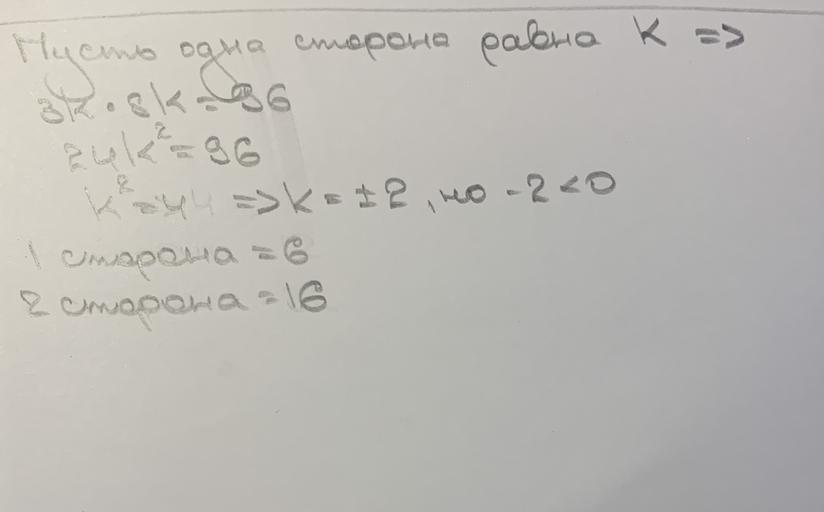 Пусть одна сторона равна K =>
3K · 8K = 96
24K² = 96
K² = 4 => K = ±2, но -2<0
1 сторона = 6
2 сторона = 16